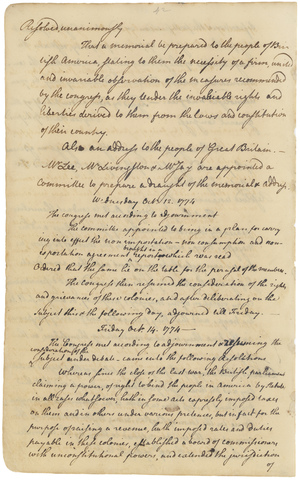 Resolved unanimously
That a memorial be prepared to the people of Bri
tish America, stating to them the necessity of a firm, united
and invariable observation of the measures recommended
by the congress, as they tender the invaluable rights and
liberties derived to them from the laws and constitution
of their country.
Also an address to the people of Great Britain. —
Mr. Lee, Mr. Livingston & Mr. Jay are appointed a
Committee to prepare a draught of the memorial & address.
Wednesday Oct. 12. 1774
The congress met according to adjournment
The committee appointed to bring in a plan for carry
ing into effect the non-importation - non consumption and non-
exportation agreement reported which was read
Ordered that the same lie on the table for the perusal of the members.
The congress then resumed the consideration of the rights
and grievances of these colonies, and after deliberating on the
subject this & the following day, adjourned till friday. —
Friday Oct 14. 1774 —
The Congress met according to adjournment & resuming the
consideration of the
subject under debate - came into the following Resolutions
Whereas since the close of the last war, the British parliament
claiming a power, of right to bind the people in America by statute
in all cases whatsoever, hath in some acts expressly imposed taxes
on them and in others under various pretences, but in fact for the
purpose of raising a revenue, hath imposed rates and duties
payable in these colonies, established a board of commissioners
with unconstitutional powers, and extended the jurisdiction
of